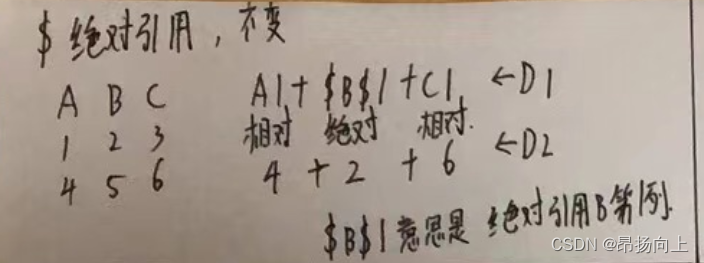 $ 绝对引用，不变
A B C A1+$B$1+C1 ←D1
1 2 3 相对 绝对 相对.
4 5 6 4 + 2 + 6 ←D2
$B$1 意思是 绝对引用B第1列.
CSDN @昂扬向上